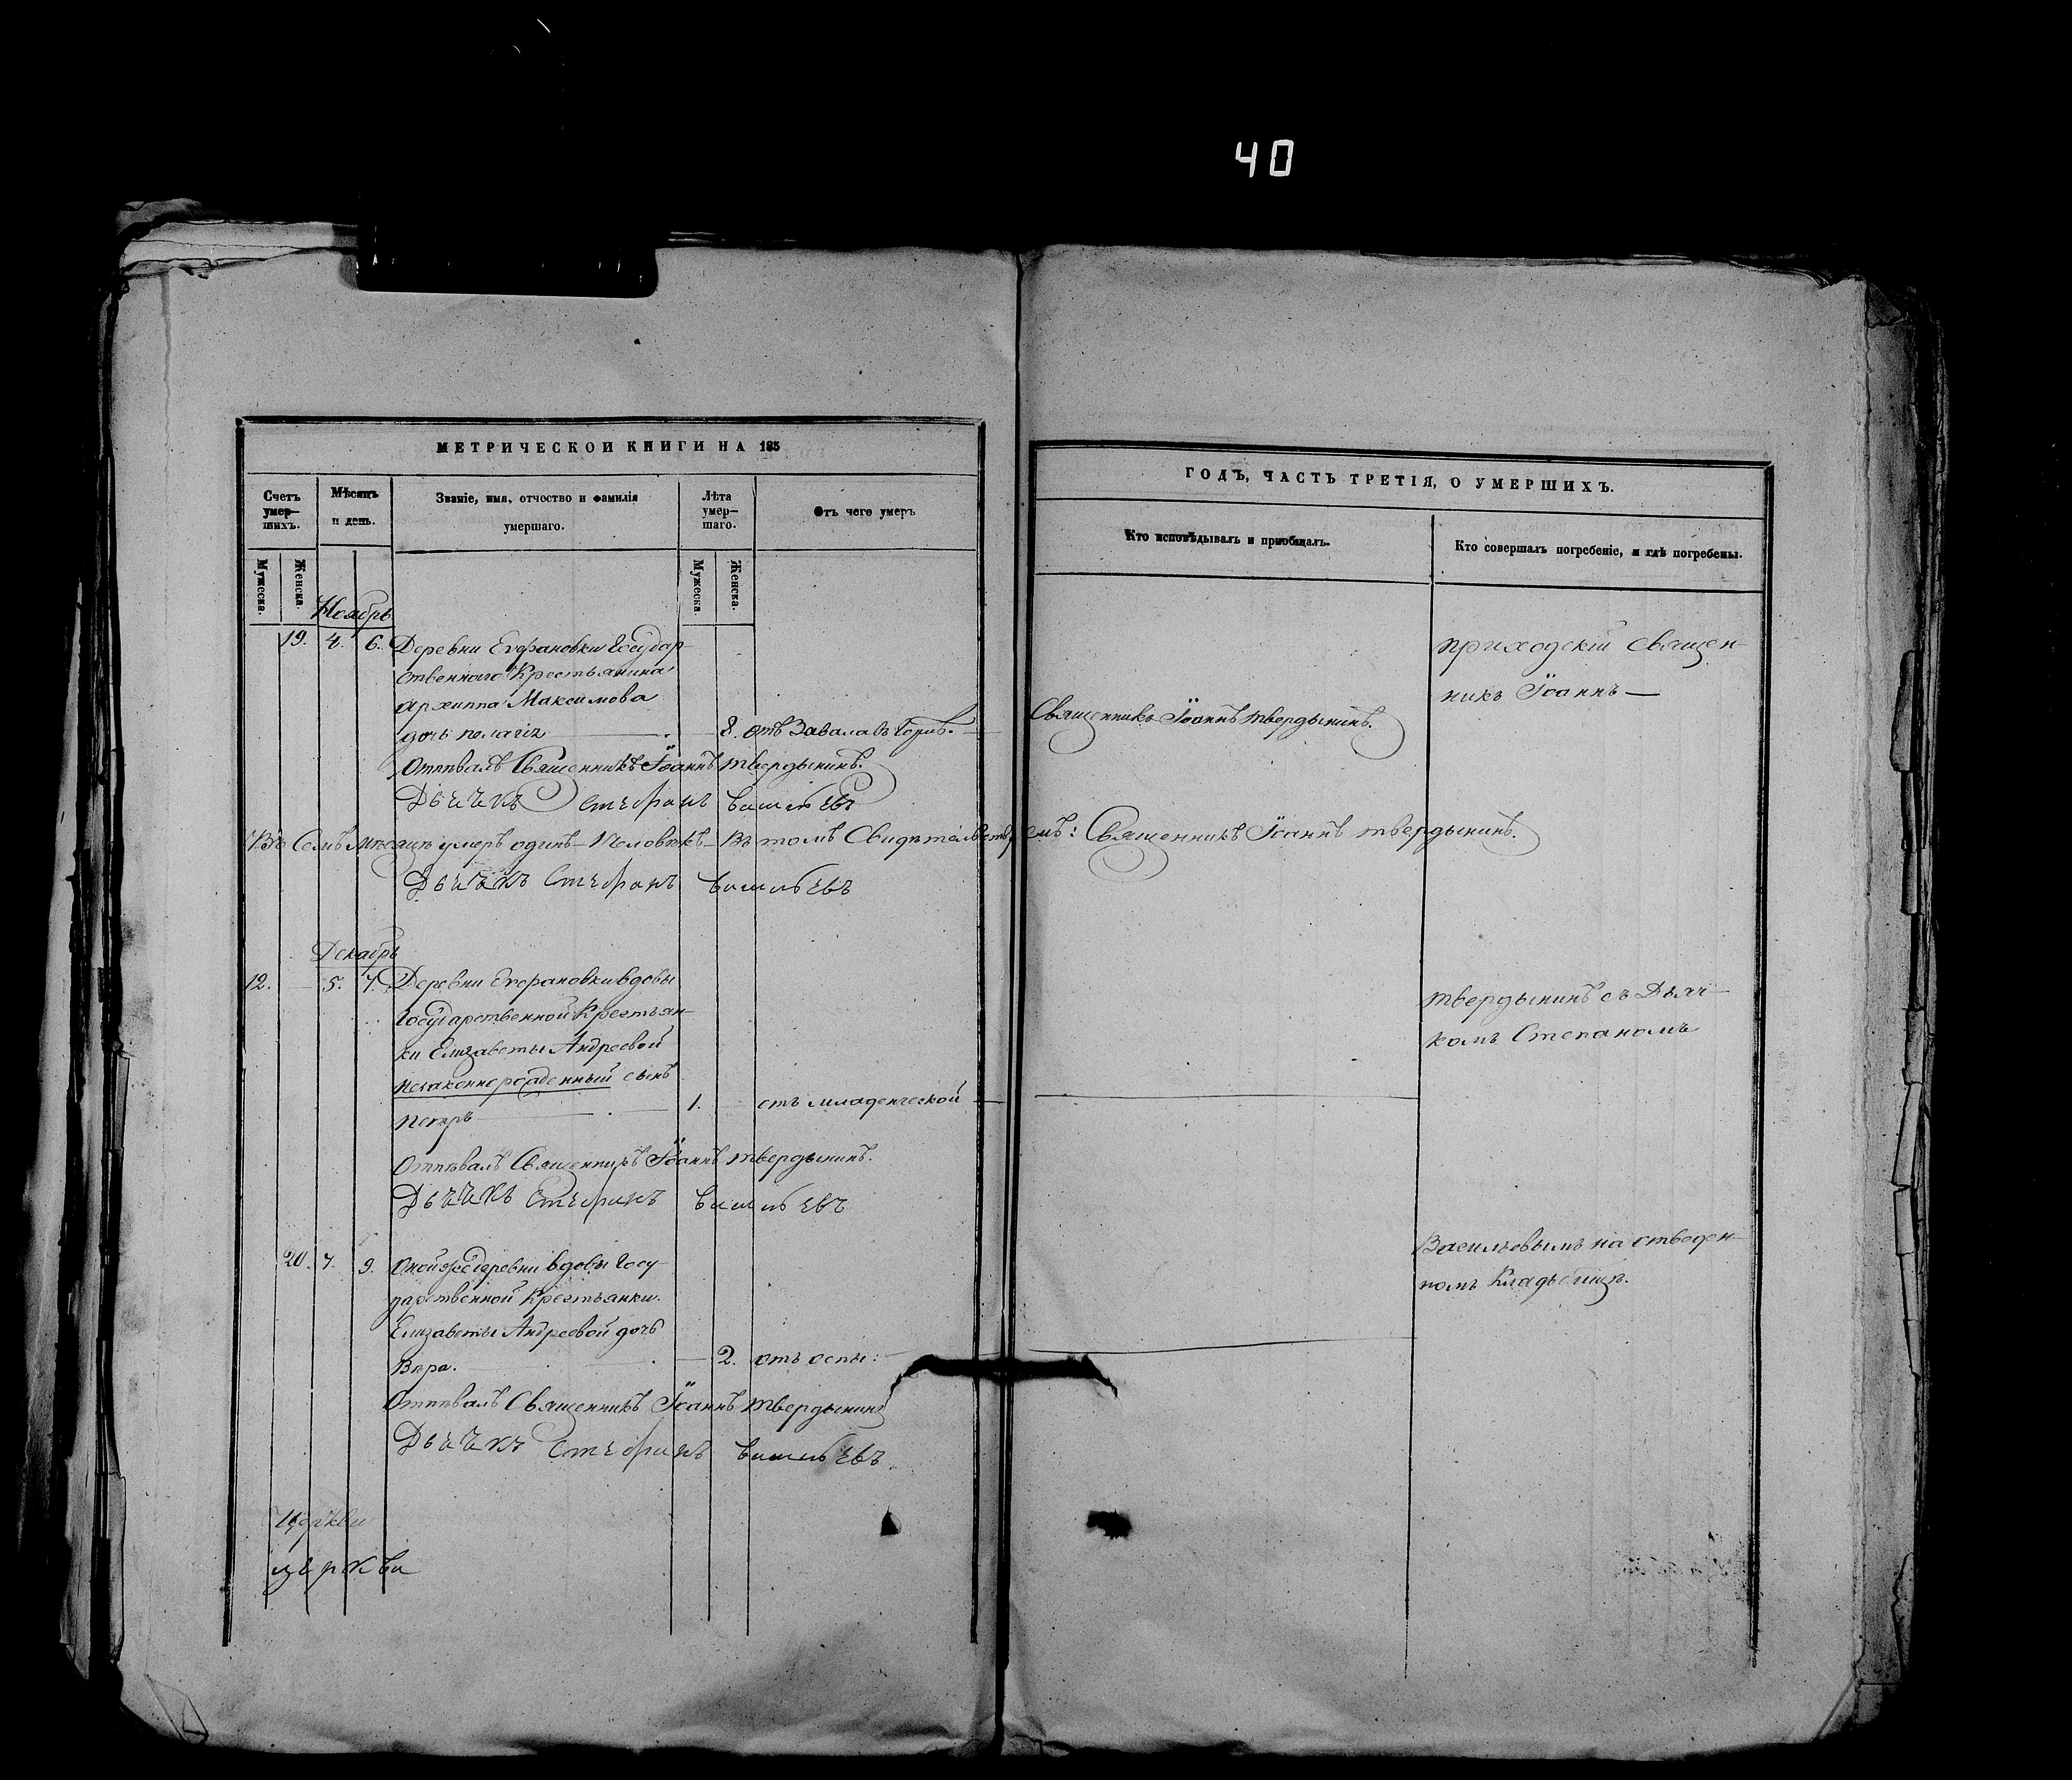 40
МЕТРИЧЕСКОЙ КНИГИ НА 185
ГОДЪ, ЧАСТЬ ТРЕТІЯ, О УМЕРШИХЪ.
Счетъ умер-
шихъ.
Мѣсяцъ
и день.
Званіе, имя, отчество и фамилія
умершаго.
Лѣта
умер-
шаго.
Отъ чего умеръ
Кто исповѣдывалъ и пріобщалъ.
Кто совершалъ погребеніе, и гдѣ погребены.
Мужеска.
Женска.
Мужеска.
Женска.
Ноябрь
19. 4. 6. Деревни Государ-
ственнаго Крестьянина
Архиппа Максимова
дочь пелагія 8. отъ Завала въ
Священникъ Іоаннъ твердынинъ.
приходскій Священ-
никъ Іоаннъ
Отпѣвалъ Священникъ Іоаннъ твердынинъ.
Дьячкъ Стефанъ
Въ Семъ Мѣсяцѣ умеръ одинъ Человѣкъ Въ томъ Священникъ Іоаннъ твердынинъ.
Дьячкъ Стефанъ
Декабрь
12. 5. 7. Деревни вдовы
Государственной Крестьян-
ки Елизаветы Андреевой
незаконнорожденный сынъ
петръ 1. отъ младенческой
твердынинъ съ Дьяч-
комъ Степаномъ
Отпѣвалъ Священникъ Іоаннъ твердынинъ.
Дьячкъ Стефанъ
20. 7. 9. Оной же деревни вдовы Госу-
дарственной Крестьянки.
Елизаветы Андреевой дочь
Вѣра. 2. отъ оспы:
Васильевымъ на отведен-
номъ Кладбищѣ.
Отпѣвалъ Священникъ Іоаннъ твердынинъ
Дьячкъ Стефанъ
Церкви
церкви